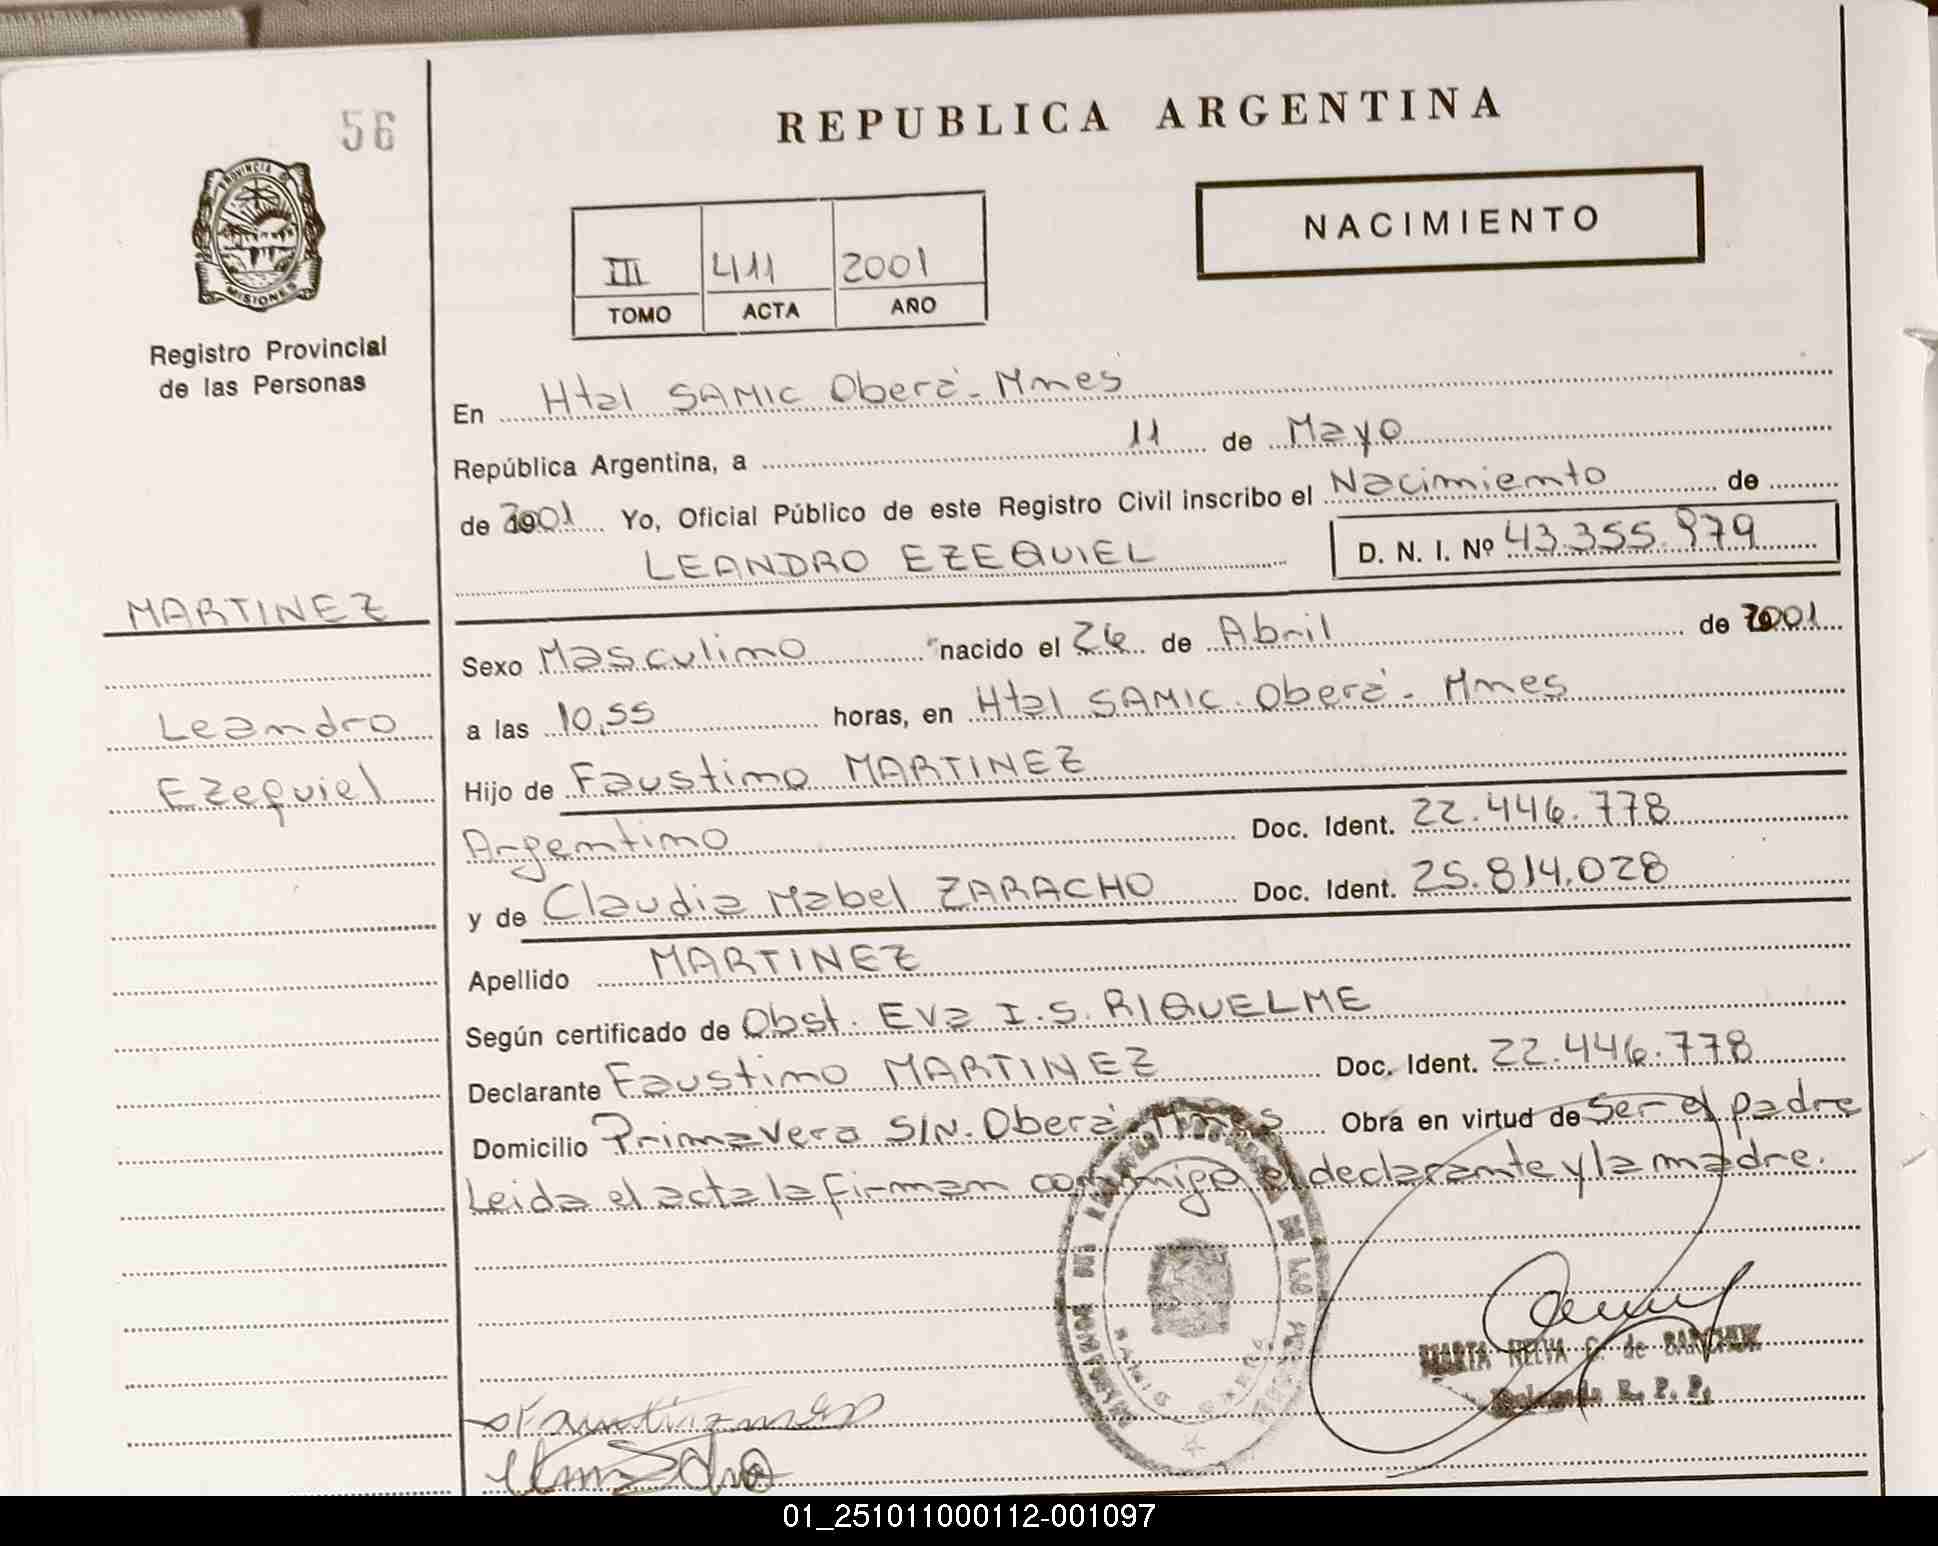 56
REPUBLICA ARGENTINA
PROVINCIA DE
MISIONES
NACIMIENTO
III 411 2001
TOMO ACTA AÑO
Registro Provincial
de las Personas
En Htal SAMIC Oberá - Mnes
República Argentina, a 11 de Mayo
de 2001 Yo, Oficial Público de este Registro Civil inscribo el Nacimiento de
LEANDRO EZEQUIEL D. N. I. Nº 43.355.979
MARTINEZ
Sexo Masculino nacido el 26 de Abril de 2001
Leandro
a las 10,55 horas, en Htal SAMIC. Oberá - Mnes
Ezequiel
Hijo de Faustino MARTINEZ
Argentino Doc. Ident. 22.446.778
y de Claudia Mabel ZARACHO Doc. Ident. 25.814.028
Apellido MARTINEZ
Según certificado de Obst. Eva I.S. RIQUELME
Declarante Faustino MARTINEZ Doc. Ident. 22.446.778
Domicilio Primavera S/N. Oberá - Mnes Obra en virtud de Ser el padre
Leida el acta la firman conmigo el declarante y la madre.
MARTA NELVA C. de
R. P. P.
01_251011000112-001097